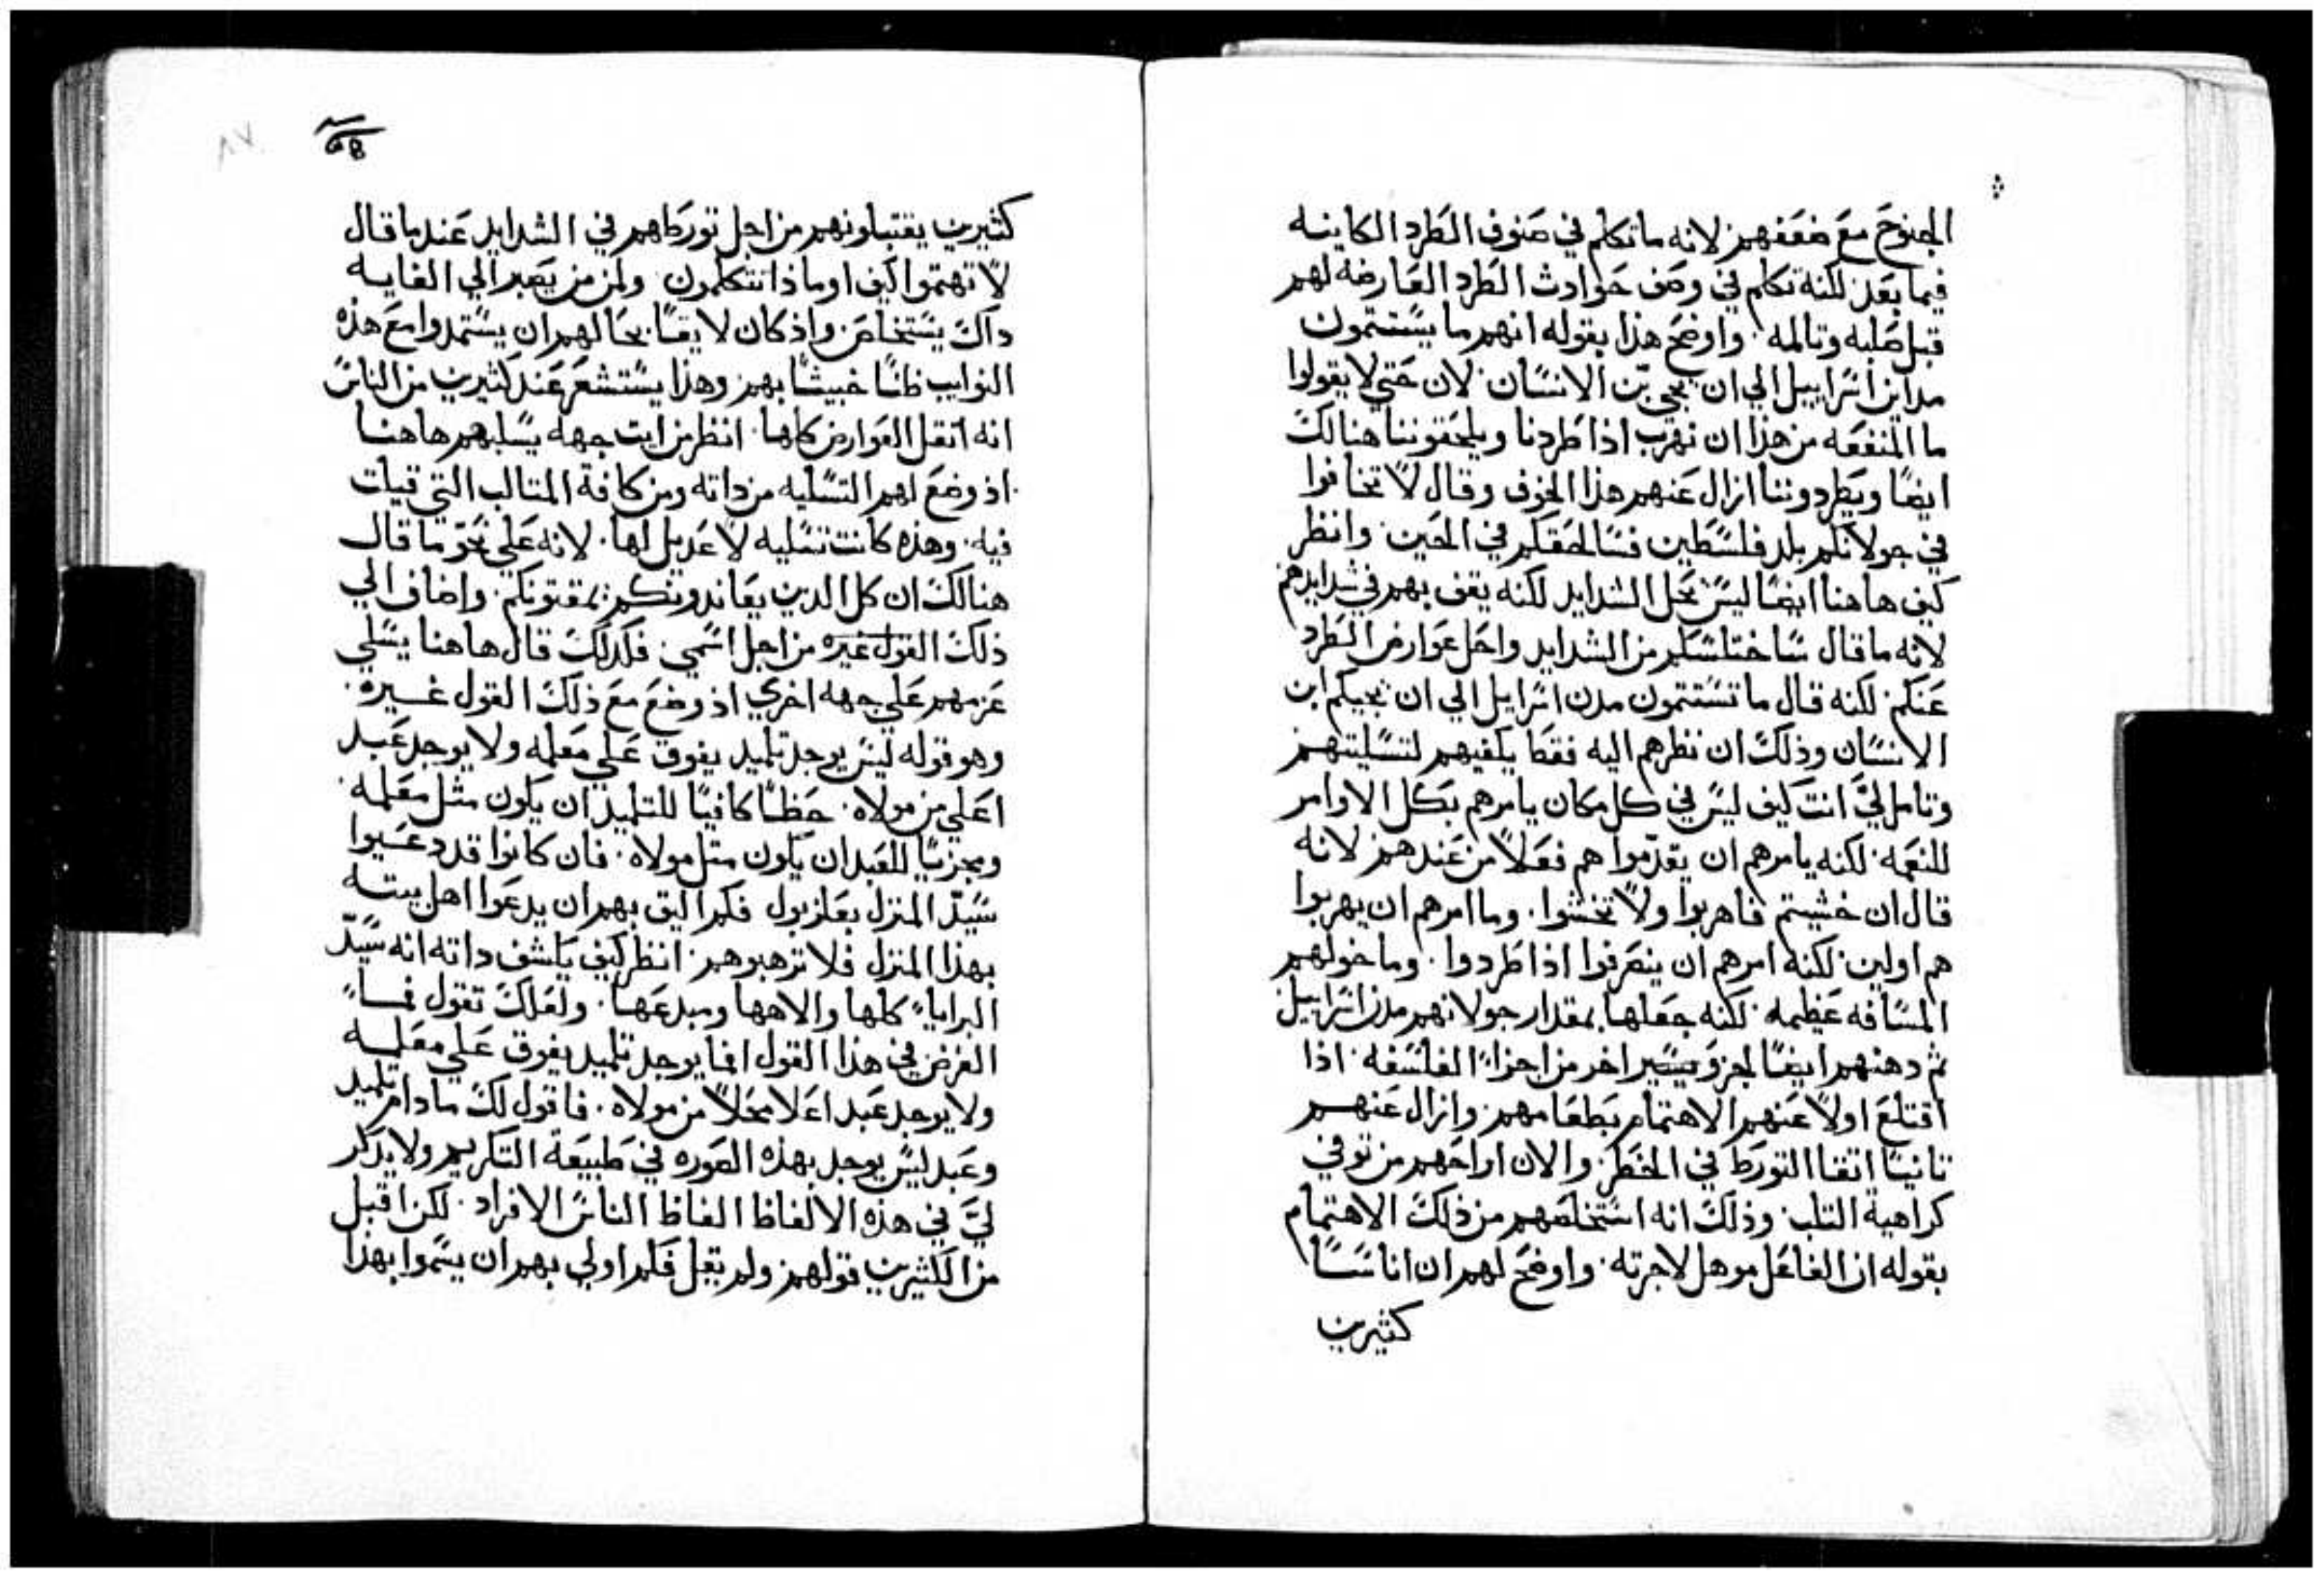 الجنوح مع ضعفهم لانه ما تكلم في صنوف الطرد الكاينه
فيما بعد لكنه تكلم في وصف حوادث الطرد العارضه لهم
قبل صلبه وتالمه. واوضح هذا بقوله انهم ما يستتمون
مداين اسراييل الي ان يجي بن الانسان. لان حتي لا يقولوا
ما المنفعه من هذا ان نهرب اذا طردنا ويلحقوننا هنالك
ايضا ويطردوننا ازال عنهم هذا الخوف وقال لا تخافوا
في جولانكم بلد فلسطين فسالحقكم في الحين. وانظر
كيف هاهنا ايضا ليس يحل الشدايد لكنه يقف بهم في شدايدهم
لانه ما قال ساختلسكم من الشدايد واحل عوارض الطرد
عنكم. لكنه قال ما تستتمون مدن اسرايل الي ان يجيكم ابن
الانسان وذلك ان نظرهم اليه فقط يكفيهم لتسليتهم
وتامل لي انت كيف ليس في كل مكان يامرهم بكل الاوامر
للنعمه. لكنه يامرهم ان يقدموا هم فعلا من عندهم لانه
قال ان خشيتم فاهربوا ولا تخشوا. وما امرهم ان يهربوا
هم اولين. لكنه امرهم ان ينصرفوا اذا طردوا. وما خولهم
المسافه عظيمه. لكنه جعلها بمقدار جولانهم مدن اسراييل
ثم دهنهم ايضا لجزو يسير اخر من اجزاء الفلسفه. اذا
اقتلع اولا عنهم الاهتمام بطعامهم. وازال عنهم
تانيا اتقا التورط في الخطر. والان اراحهم من توقي
كراهية التلب. وذلك انه استخلصهم من ذلك الاهتمام
بقوله ان الفاعل موهل لاجرته. واوضح لهم ان اناسا
كثيرين
كثيرين يقتبلونهم من اجل تورطهم في الشدايد عند ما قال
لا تهتموا كيف او ماذا تتكلمون ولمن من يصبر الي الغايه
داك يستخلص. واذ كان لا يقسا بحالهم ان يستمدوا مع هذه
النوايب ظنا خبيثا بهم. وهذا يستشعر عند كثيرين من الناس
انه اتقل العوارض كلها. انظر من ايت جهه يسليهم هاهنا
اذ وضع لهم التسليه من داته ومن كافة المتالب التي قيلت
فيه. وهذه كانت تسليه لا عديل لها. لانه علي نحو ما قال
هنالك ان كل الدين يعاندونكم يمقتونكم. واضاف الي
ذلك القول غيره من اجل اسمي. فكدلك قال هاهنا يسلي
عزمهم علي جهه اخري اذ وضع مع ذلك القول غيره.
وهو قوله ليس يوجد تلميد يفوق علي معلمه ولا يوجد عبد
اعلي من مولاه. حظا كافيا للتلميد ان يكون مثل معلمه.
ومجزيا للعبد ان يكون متل مولاه. فان كانوا قد دعيوا
سيد المنزل بعلزبول فكم اليق بهم ان يدعوا اهل بيته
بهذا المنزل فلا ترهبوهم. انظر كيف يكشف داته انه سيد
البرايا كلها والاهها ومبدعها. ولعلك تقول فما
الغرض في هذا القول افما يوجد تلميد يفوق علي معلمه
ولا يوجد عبد اعلا محلا من مولاه. فاقول لك ما دام تلميد
وعبد ليس يوجد بهذه الصوره في طبيعة التكريم ولا يدكر
لي في هذه الالفاظ الفاظ الناس الافراد. لكن اقبل
من الكثيرين قولهم. ولم يقل فكم اولي بهم ان يسموا بهذا